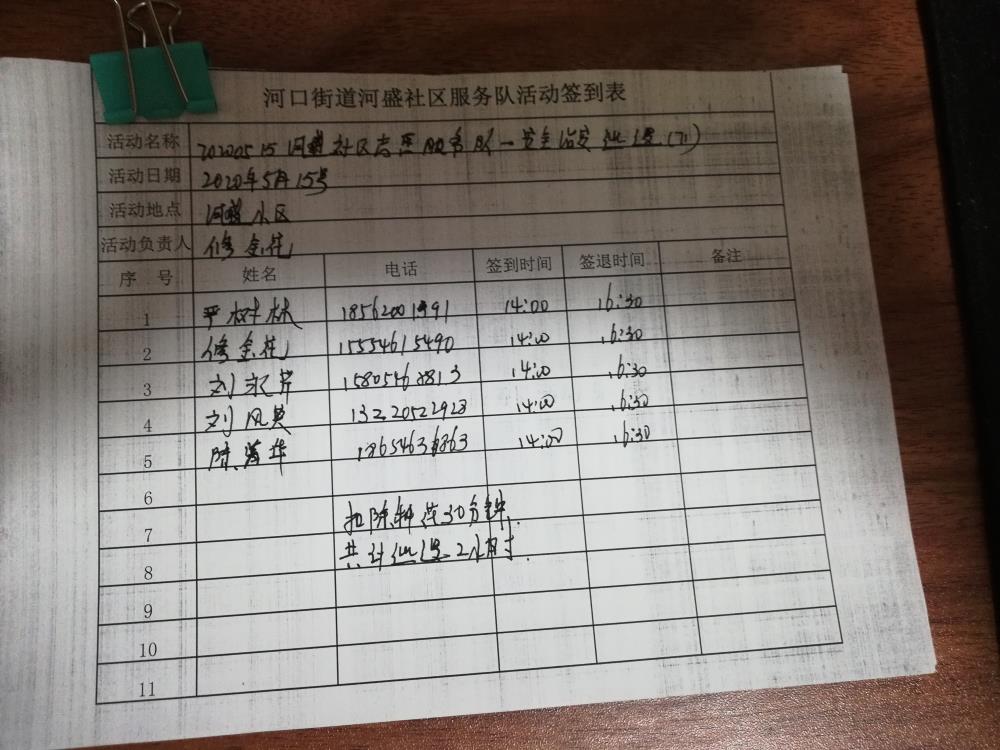 河口街道河盛社区服务队活动签到表
活动名称 20200515河盛社区志愿服务队一安全治安巡逻(71)
活动日期 2020年5月15号
活动地点 河盛小区
活动负责人 修金花
序 号 姓名 电话 签到时间 签退时间 备注
1 严树林 18562001991 14:00 16:30
2 修金花 15554615490 14:00 16:30
3 刘 芹 15805468813 14:00 16:30
4 刘风英 13220522928 14:00 16:30
5 陈 华 14:00 16:30
6
7 扣除 30分钟.
8 共计巡逻2小时.
9
10
11